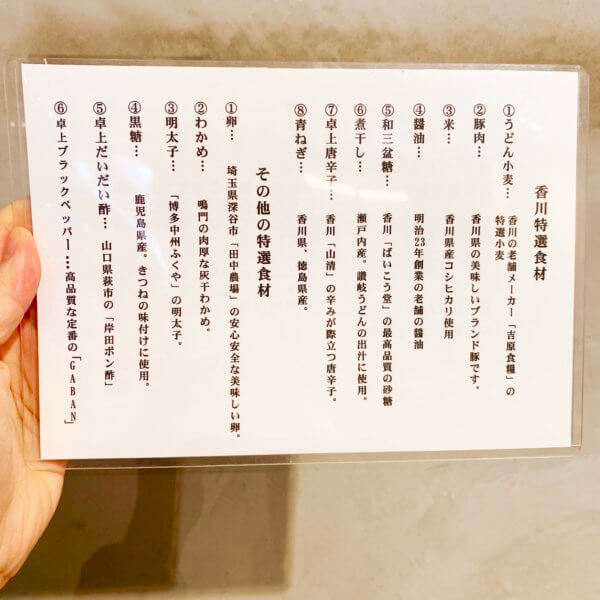 香川特選食材
①うどん小麦… 香川の老舗メーカー「吉原食糧」の
特選小麦
②豚肉… 香川県の美味しいブランド豚です。
③米… 香川県産コシヒカリ使用
④醤油… 明治23年創業の老舗の醤油
⑤和三盆糖… 香川「ばいこう堂」の最高品質の砂糖
⑥煮干し… 瀬戸内産。讃岐うどんの出汁に使用。
⑦卓上唐辛子… 香川「山清」の辛みが際立つ唐辛子。
⑧青ねぎ… 香川県、徳島県産。
その他の特選食材
①卵… 埼玉県深谷市「田中農場」の安心安全な美味しい卵。
②わかめ… 鳴門の肉厚な灰干わかめ。
③明太子… 「博多中州ふくや」の明太子。
④黒糖… 鹿児島県産。きつねの味付けに使用。
⑤卓上だいだい酢… 山口県萩市の「岸田ポン酢」
⑥卓上ブラックペッパー…高品質な定番の「GABAN」